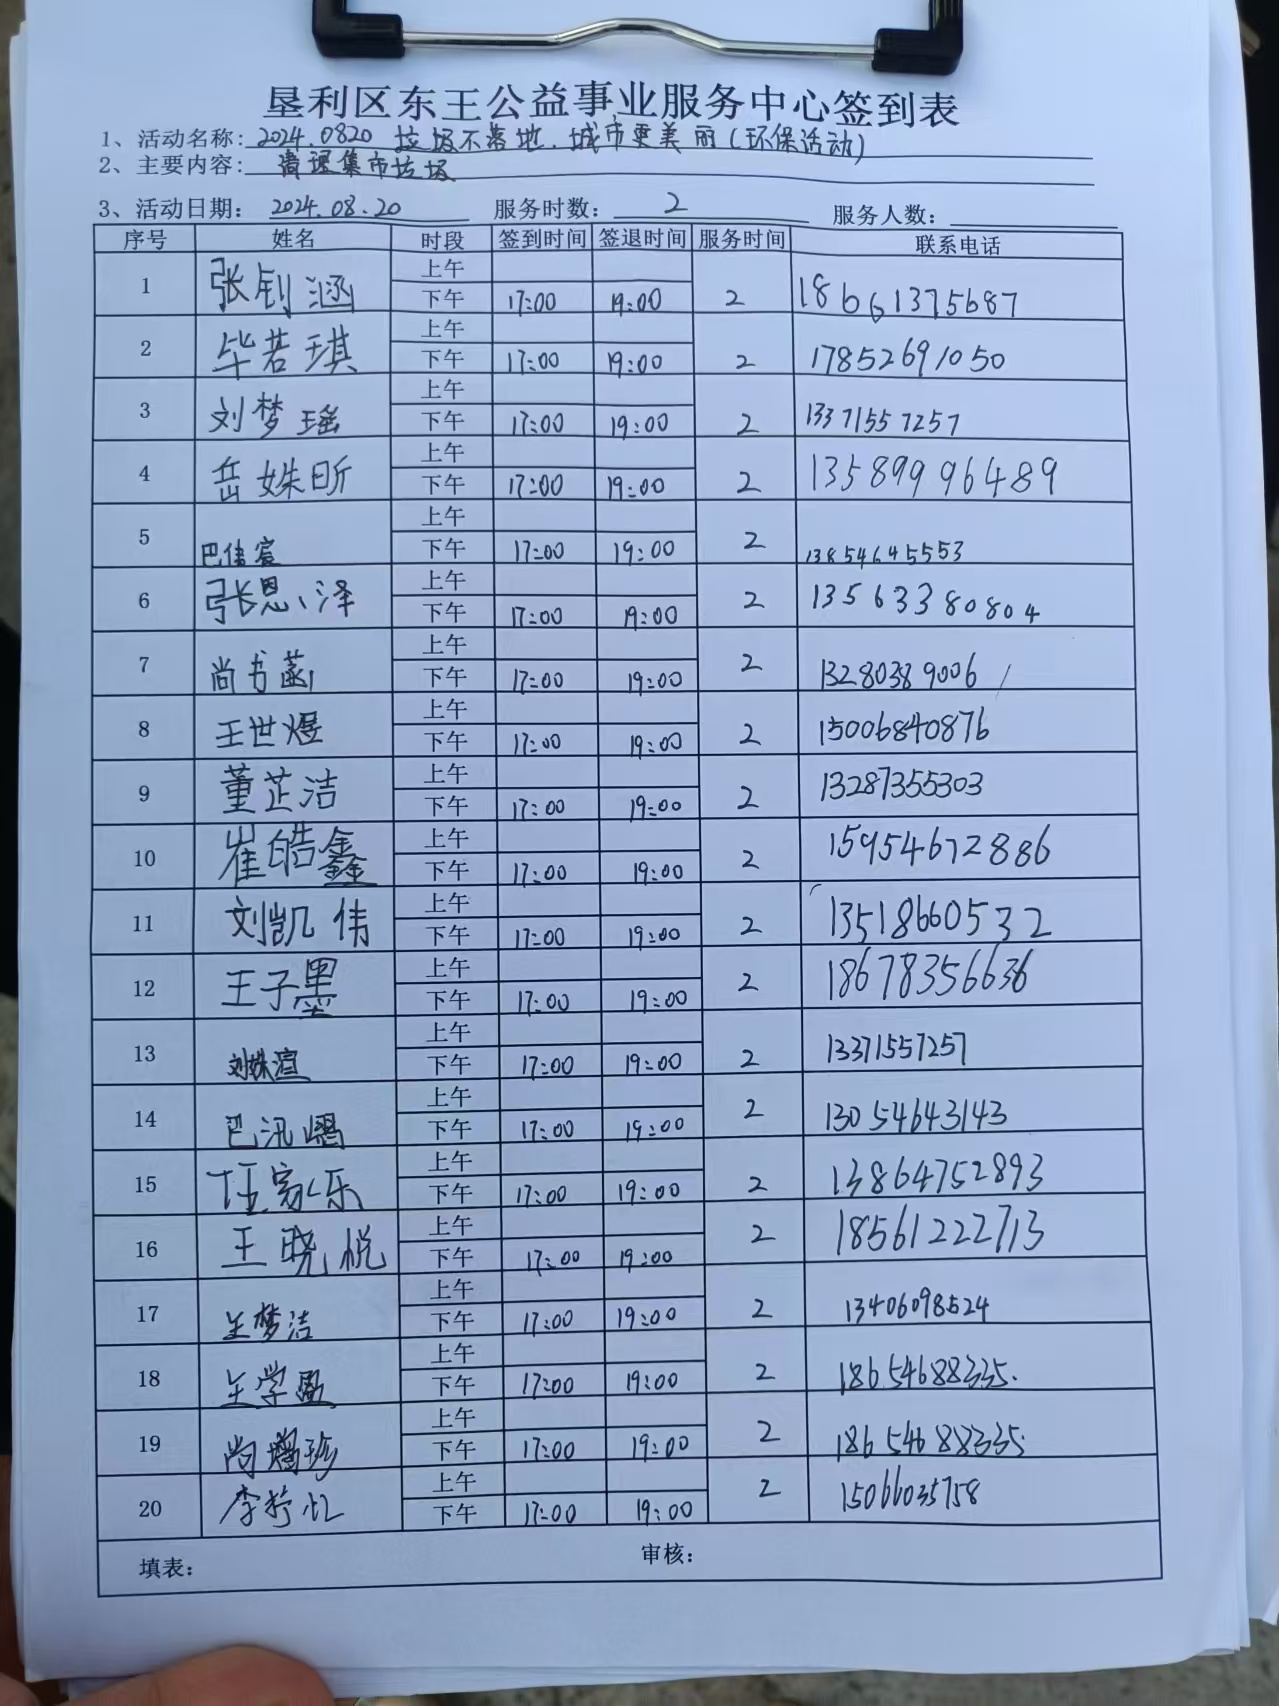 垦利区东王公益事业服务中心签到表
1、活动名称: 2024.0820 垃圾不落地.城市更美丽(环保活动)
2、主要内容: 清理集市垃圾
3、活动日期: 2024.08.20 服务时数: 2 服务人数:
序号 姓名 时段 签到时间 签退时间 服务时间 联系电话
1 张钊涵 上午
下午 17:00 19:00 2 18661375687
2 毕若琪 上午
下午 17:00 19:00 2 17852691050
3 刘梦瑶 上午
下午 17:00 19:00 2 13371557257
4 岳姝昕 上午
下午 17:00 19:00 2 13589996489
5 巴伟宸 上午
下午 17:00 19:00 2 13854645553
6 张恩泽 上午
下午 17:00 19:00 2 13563380804
7 尚书菡 上午
下午 17:00 19:00 2 13280389006
8 王世煜 上午
下午 17:00 19:00 2 15006840876
9 董芷洁 上午
下午 17:00 19:00 2 13287355303
10 崔皓鑫 上午
下午 17:00 19:00 2 15954672886
11 刘凯伟 上午
下午 17:00 19:00 2 13518660532
12 王子墨 上午
下午 17:00 19:00 2 18678356636
13 刘姝渲 上午
下午 17:00 19:00 2 13371557257
14 巴汛 上午
下午 17:00 19:00 2 13054643143
15 任家乐 上午
下午 17:00 19:00 2 13864752893
16 王晓悦 上午
下午 17:00 19:00 2 18561222713
17 王梦洁 上午
下午 17:00 19:00 2 13406098524
18 王学盈 上午
下午 17:00 19:00 2 18654688335.
19 尚 珍 上午
下午 17:00 19:00 2 18654688335.
20 李 忆 上午
下午 17:00 19:00 2 15066035758
填表: 审核: